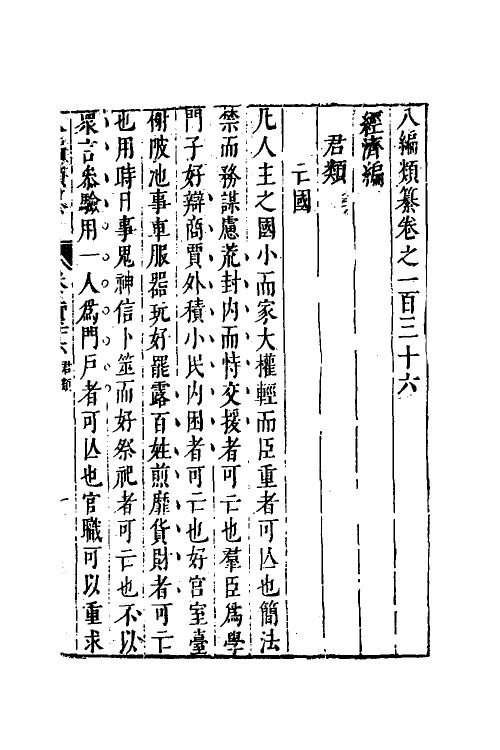 八編類纂卷之一百三十六
經濟編
君類
亡國
凡人主之國小而家大權輕而臣重者可亡也簡法
禁而務謀慮荒封内而恃交援者可亡也羣臣爲學
門子好辯商賈外積小民内困者可亡也好宫室臺
榭陂池事車服器玩好罷露百姓煎靡貨財者可亡
也用時日事鬼神信卜筮而好祭祀者可亡也不以
衆言參驗用一人爲門戸者可亡也官職可以重求
君類